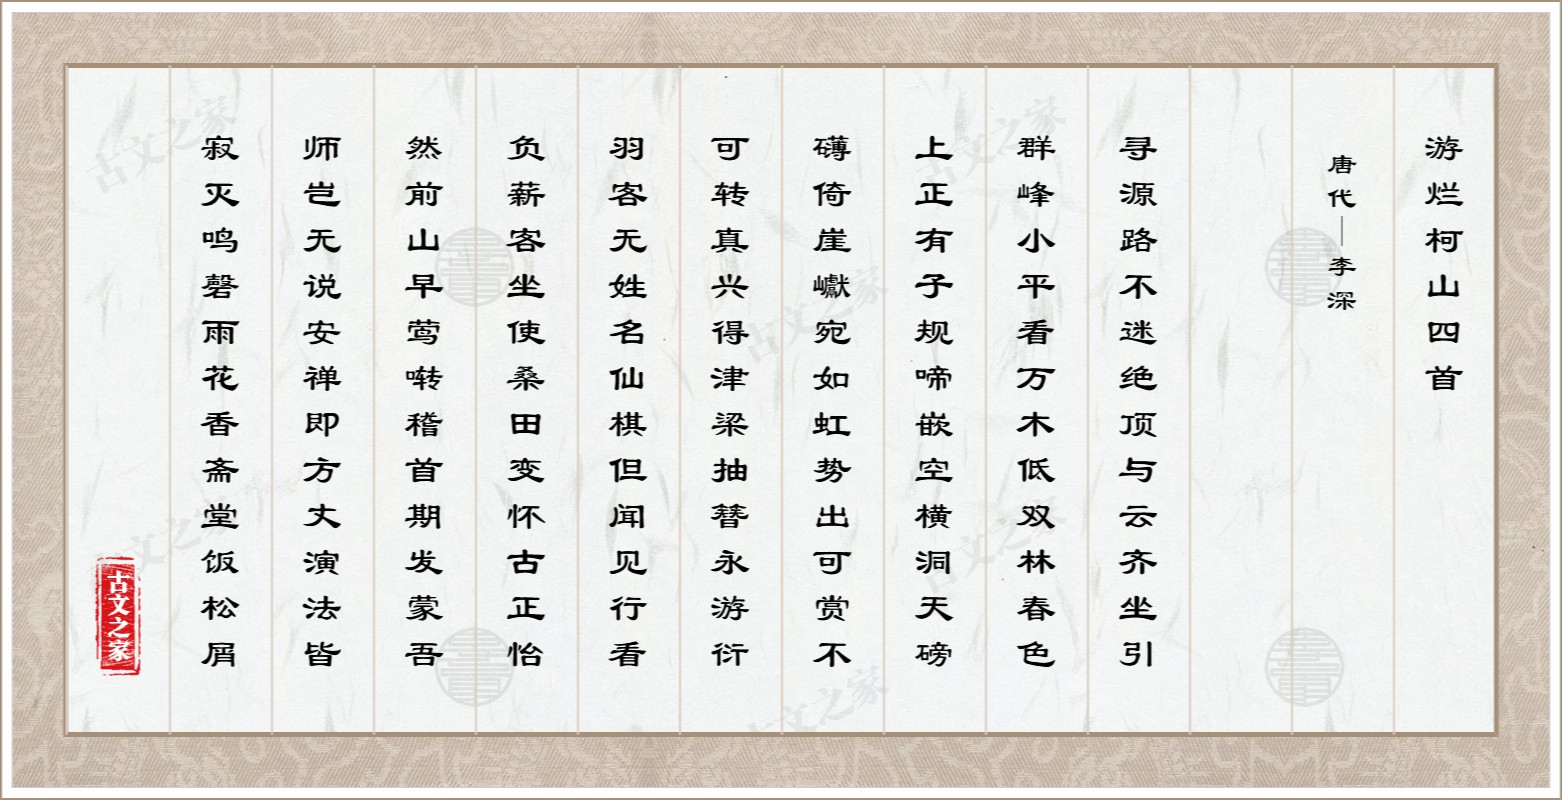 游烂柯山四首
唐代—李深
寻源路不迷绝顶与云齐坐引
群峰小平看万木低双林春色
上正有子规啼嵌空横洞天磅
礴倚崖巘宛如虹势出可赏不
可转真兴得津梁抽替永游衍
羽客无姓名仙棋但闻见行看
负薪客坐使桑田变怀古正怡
然前山早莺啭稽首期发蒙吾
师岂无说安禅即方丈演法皆
寂灭鸣磬雨花香斋堂饭松屑
古文之家
古文之家
古文之家
古文之家
古文之家
古文之家
古文之家